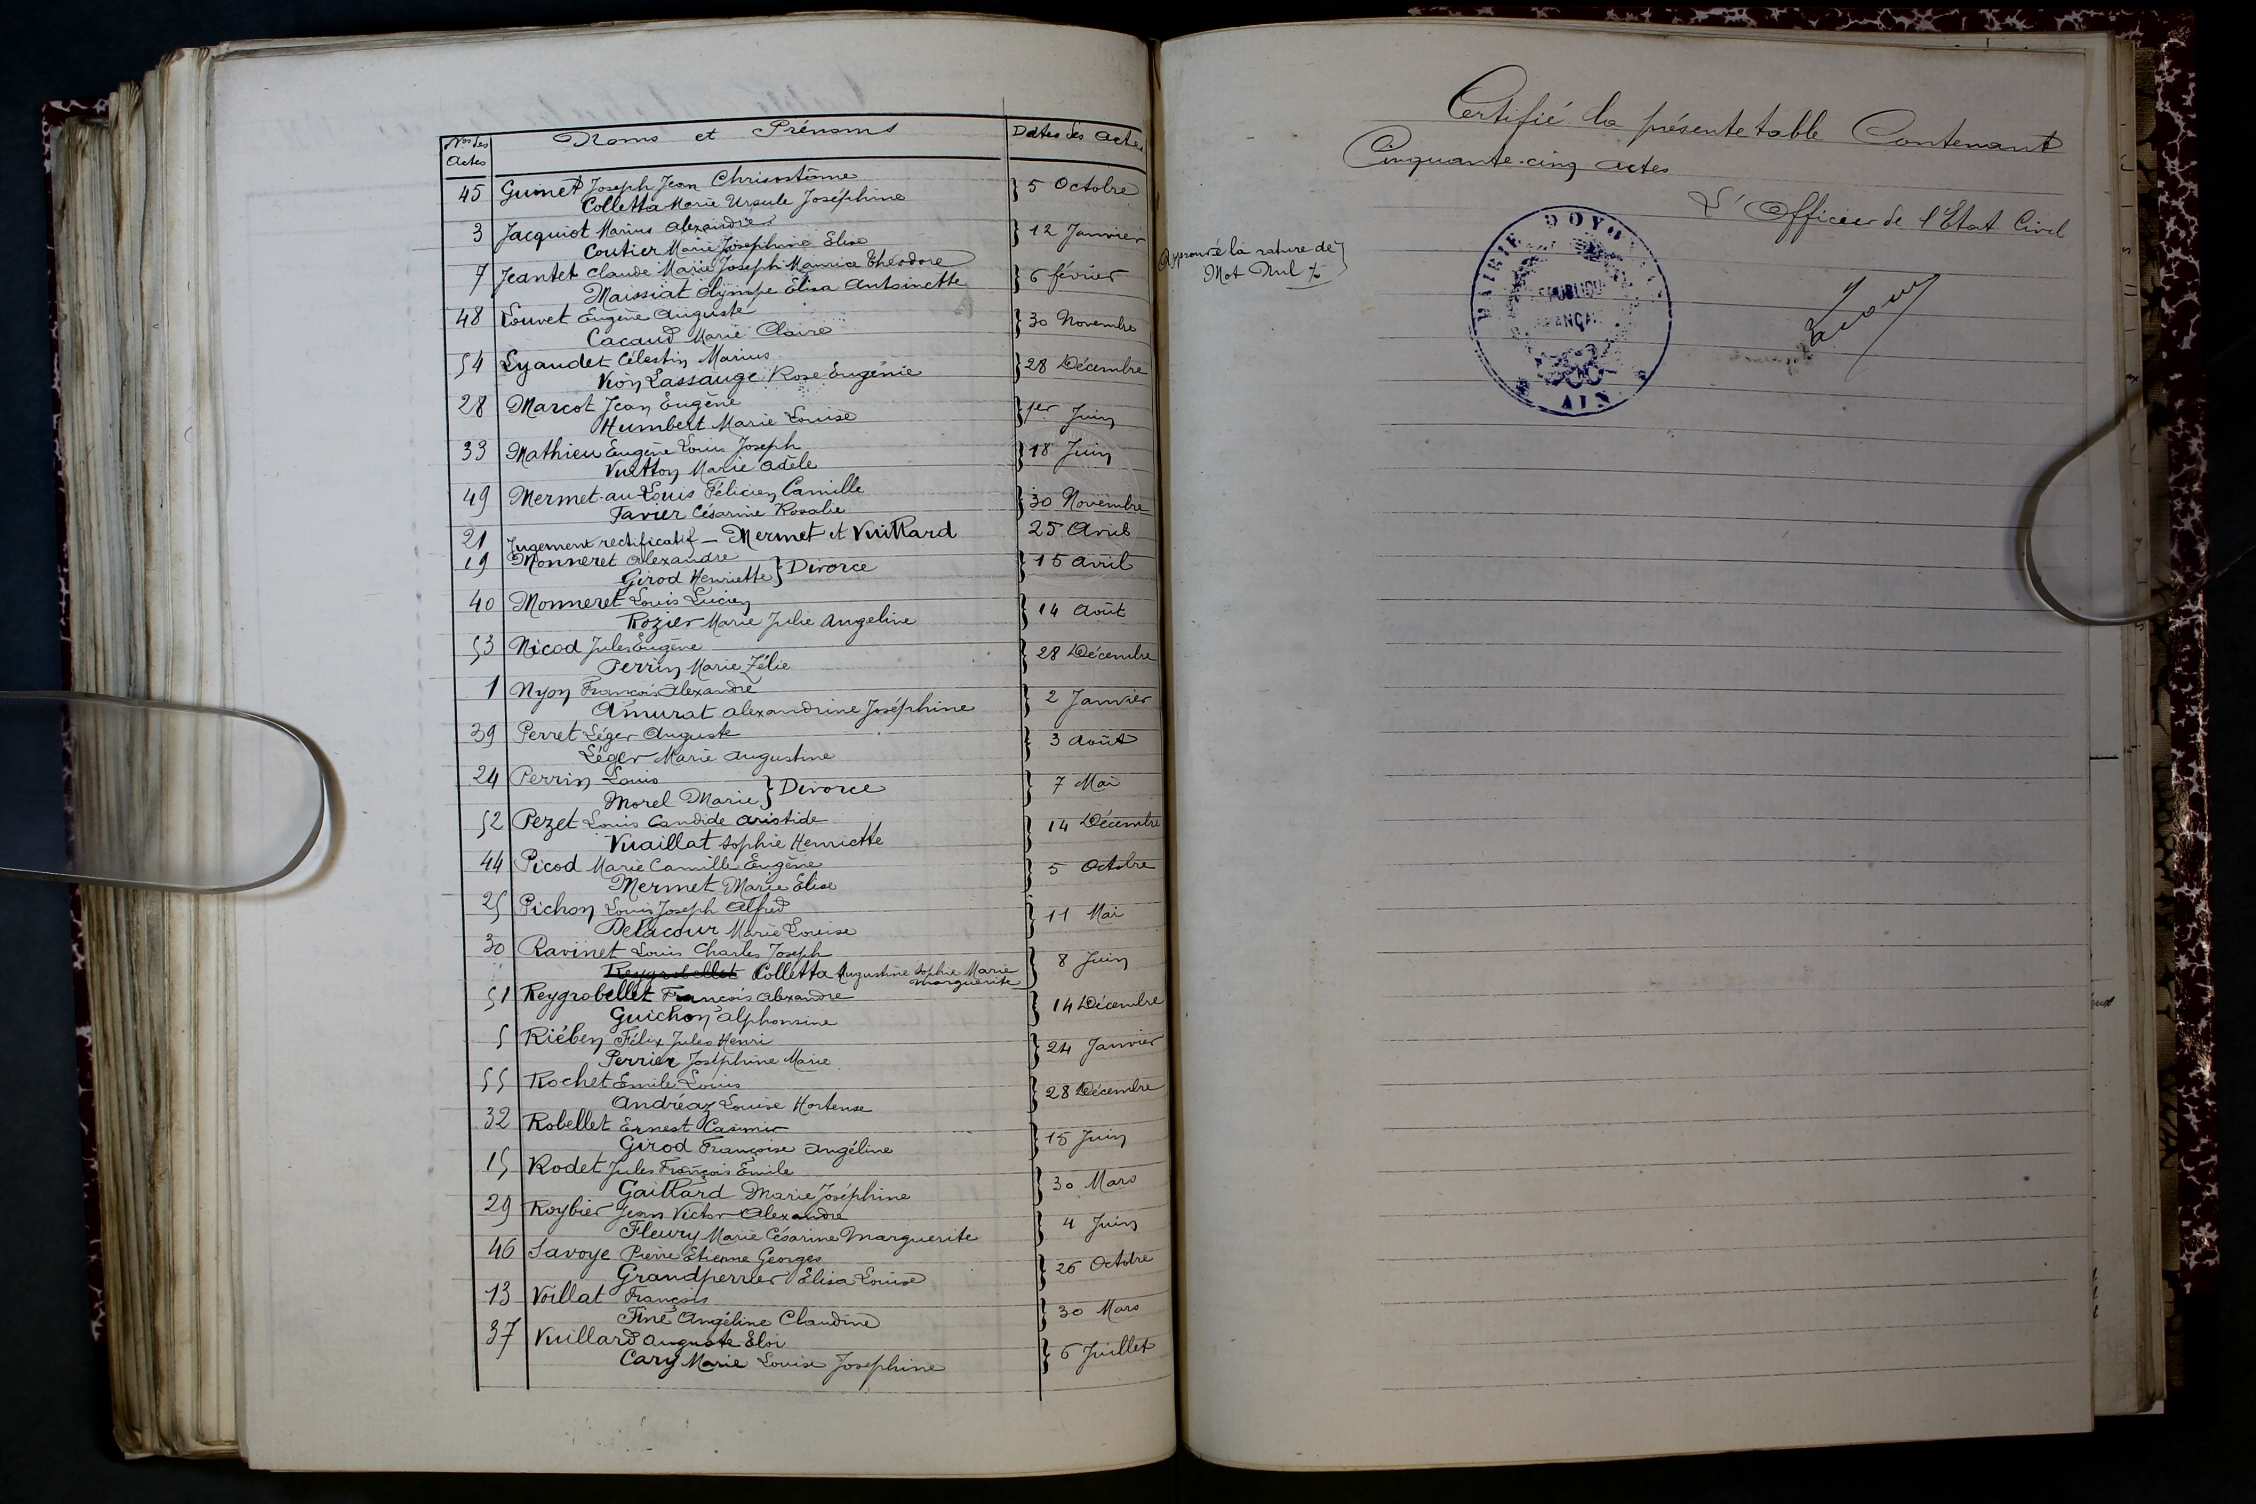 Nos des Actes Noms et Prénoms Dates des Actes
45 Guinet Joseph Jean Chrisostôme } 5 Octobre
Colletta Marie Ursule Joséphine
3 Jacquiot Marius Alexandre } 12 Janvier
Coutier Marie Joséphine Elise
7 Jeantet Claude Marie Joseph Maurice Théodore } 6 février
Maissiat Olympe Elisa Antoinette
48 Louvet Eugène Auguste } 30 Novembre
Cacaud Marie Claire
54 Lyaudet Célestin Marius } 28 Décembre
Vion Lassauge Rose Eugénie
28 Marcot Jean Eugène } 1er Juin
Humbert Marie Louise
33 Mathieu Eugène Louis Joseph } 18 Juin
Vuitton Marie Adèle
49 Mermet-au-Louis Félicien Camille } 30 Novembre
Favier Césarine Rosalie
21 Jugement rectificatif _ Mermet et Vuillard 25 Avril
19 Monneret Alexandre } 15 avril
Girod Henriette } Divorce
40 Monneret Louis Lucien } 14 Août
Rozier Marie Julie Angeline
53 Nicod Jules Eugène } 28 Décembre
Perrin Marie Zélie
1 Nyon François Alexandre } 2 Janvier
Amurat Alexandrine Joséphine
39 Perret Léger Auguste } 3 Août
Léger Marie Augustine
24 Perrin Louis } 7 Mai
Morel Marie } Divorce
52 Pezet Louis Candide Aristide } 14 Décembre
Vuaillat Sophie Henriette
44 Picod Marie Camille Eugène } 5 Octobre
Mermet Marie Elise
25 Pichon Louis Joseph Alfred } 11 Mai
Delacour Marie Louise
30 Ravinet Louis Charles Joseph } 8 Juin
Reygrobellet Colletta Augustine Sophie Marie
Marguerite
51 Reygrobellet François Alexandre } 14 Décembre
Guichon Alphonsine
5 Riében Félix Jules Henri } 24 Janvier
Perrier Joséphine Marie
55 Rochet Emile Louis } 28 Décembre
Andréaz Louise Hortense
32 Robellet Ernest Casimir } 15 Juin
Girod Françoise Angéline
15 Rodet Jules François Emile } 30 Mars
Gaillard Marie Joséphine
29 Roybier Jean Victor Alexandre } 4 Juin
Fleury Marie Césarine Marguerite
46 Savoye Pierre Etienne Georges } 26 Octobre
Grandperrier Elisa Louise
13 Voillat François } 30 Mars
Finé Angéline Claudine
37 Vuillard Auguste Eloi } 6 Juillet
Cary Marie Louise Josephine
Certifié la présente table Contenant
Cinquante-cinq actes
L'Officier de l'Etat Civil
Approuvé la rature de }
Mot Nul
MAIRIE D'OYONNAX
RÉPUBLIQUE
FRANÇAISE
AIN